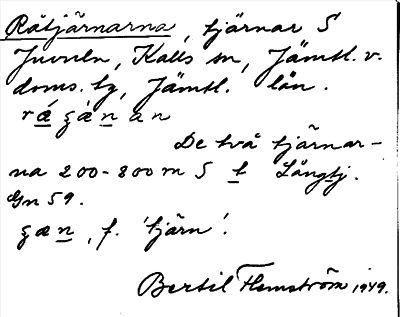 Råtjärnarna, tjärnar S
Juveln, Kalls sn, Jämtl. v.
doms. tg, Jämtl. län.
De två tjärnar-
na 200-800 m S t Långtj.
Gn 59.
f. 'tjärn'.
Bertil Flemström 1949.